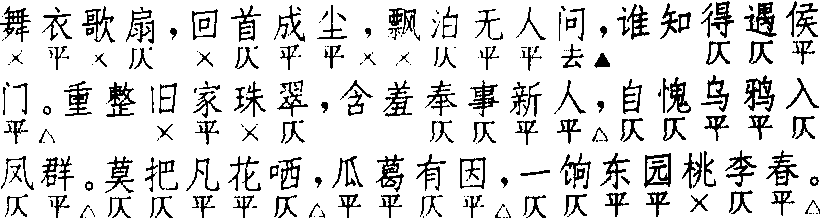 舞衣歌扇,回首成尘,飘泊无人问,谁知得遇侯
× 平 × 仄 × 仄 平 平 × × 仄 平 平 去 ▲ 仄 仄 平
门。重整旧家珠翠,含羞奉事新人,自愧乌鸦入
平 △ × 平 × 仄 仄 仄 平 平 △ 仄 仄 平 平 仄
凤群。莫把凡花哂,瓜葛有因,一饷东园桃李春。
仄 平 △ 仄 仄 平 平 仄 △ 平 平 仄 平 △ 仄 仄 平 平 × 仄 平 △